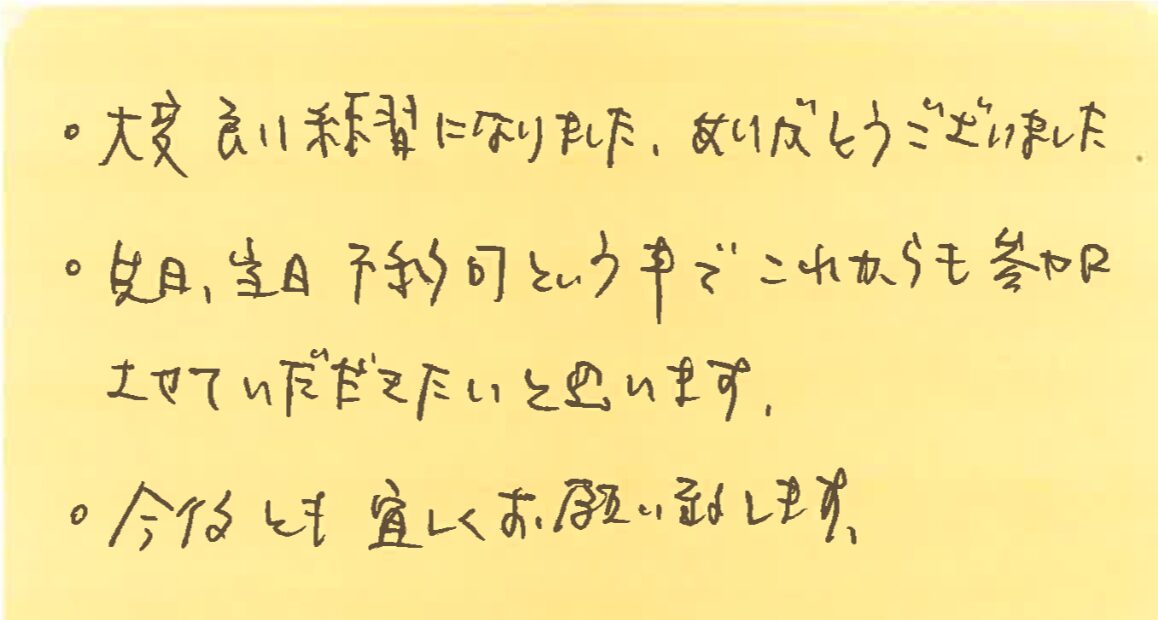 ・大変良い練習になりました、ありがとうございました
・当日 予約可という事でこれからも参加
させていただきたいと思います、
・今後とも宜しくお願い致します、